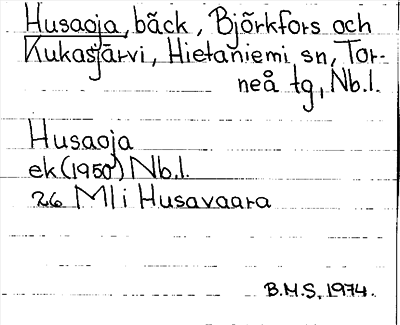 Husaoja, bäck, Björkfors och
Kukasjärvi, Hietaniemi sn, Tor-
neå tg, Nb.l.
Husaoja
ek (1950) Nb.l.
26 Ml i Husavaara
B.M.S, 1974.